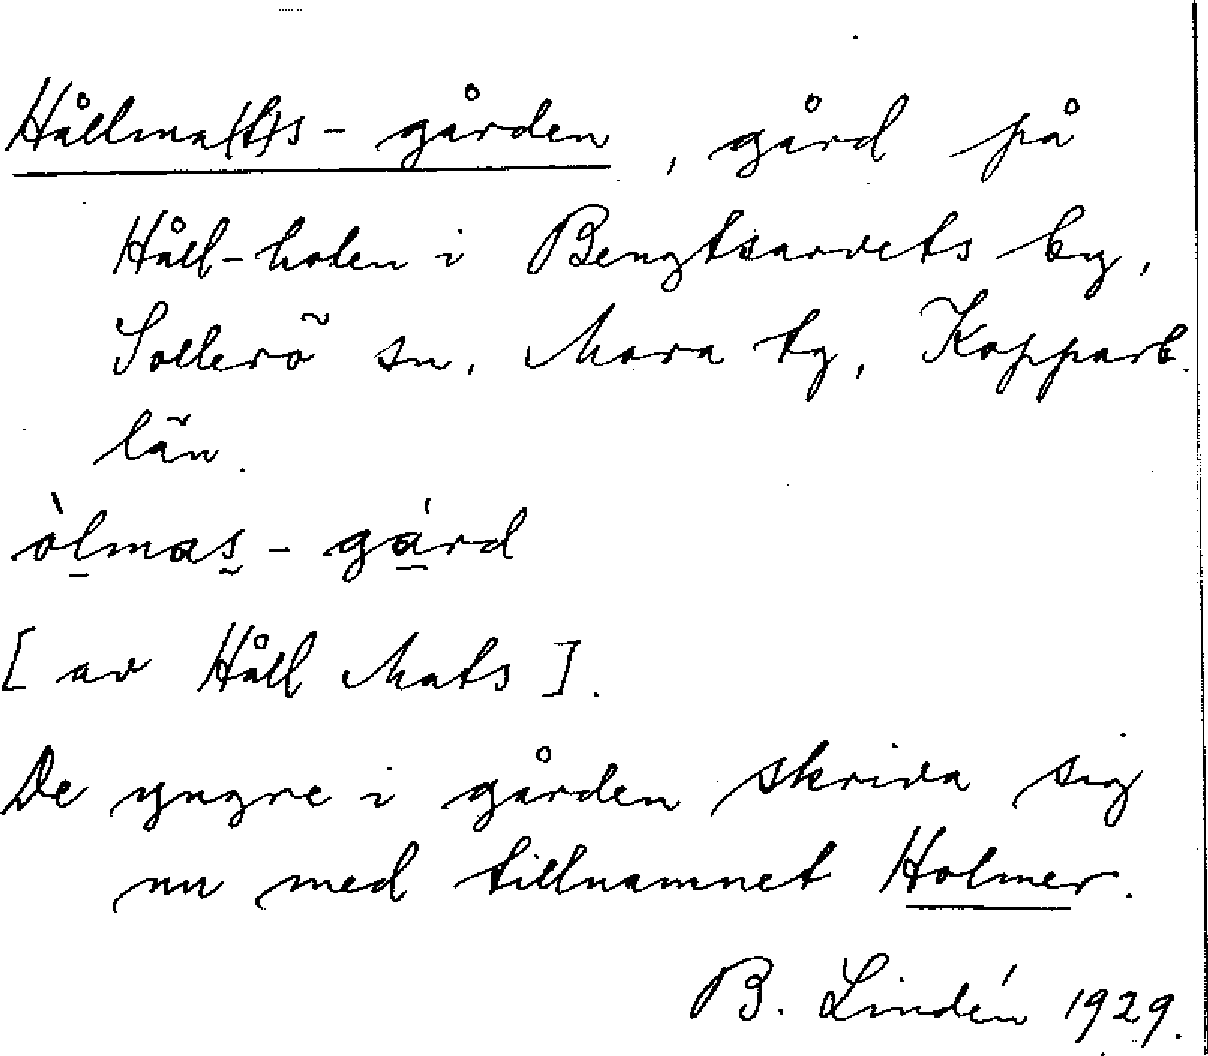 Hållma(t)s-gården, gård på
Håll-holen i Bengtsarvets by,
Sollerö sn, Mora tg, Kopparb.
län.
òlmas-gárd
[av Håll Mats].
De yngre i gården skriva sig
nu med tillnamnet Holmer.
B. Lindén 1929.